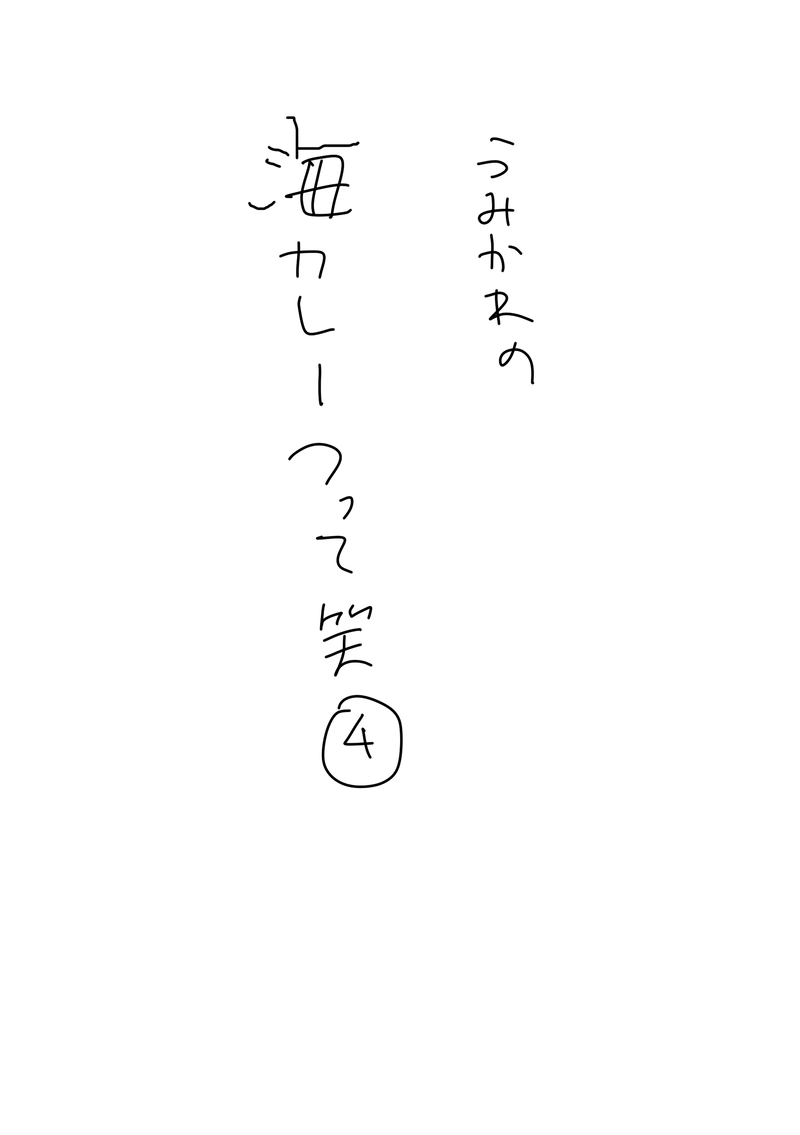 うみかれの
海カレーつって笑④